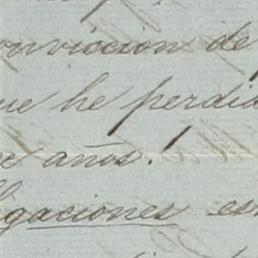 onviccion de
ue he perdid
e años.
gaciones es